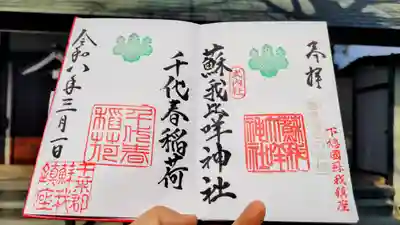 奉拝
下総國蘇我鎮座
式内社
蘇我比咩神社
蘇我比咩神社
千代春稲荷
千代春稲荷
千葉郡
蘇我
鎮座
令和八年三月一日